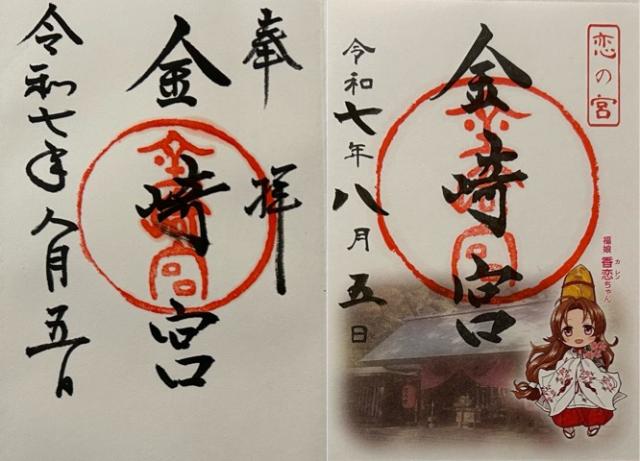 奉拝
金崎宮
令和七年八月五日
恋の宮
金崎宮
令和七年八月五日
福娘 香恋ちゃん
カレン
金崎宮
金崎宮